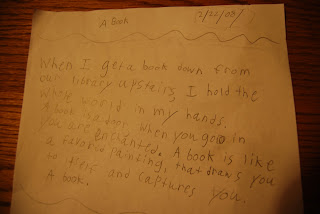 A Book
2/20/08
When I get a book down from
our library upstairs, I hold the
whole world in my hands.
A book is a door. When you go in
you are enchanted. A book is like
a favorite painting, that draws you
to itself and captures you.
A book.